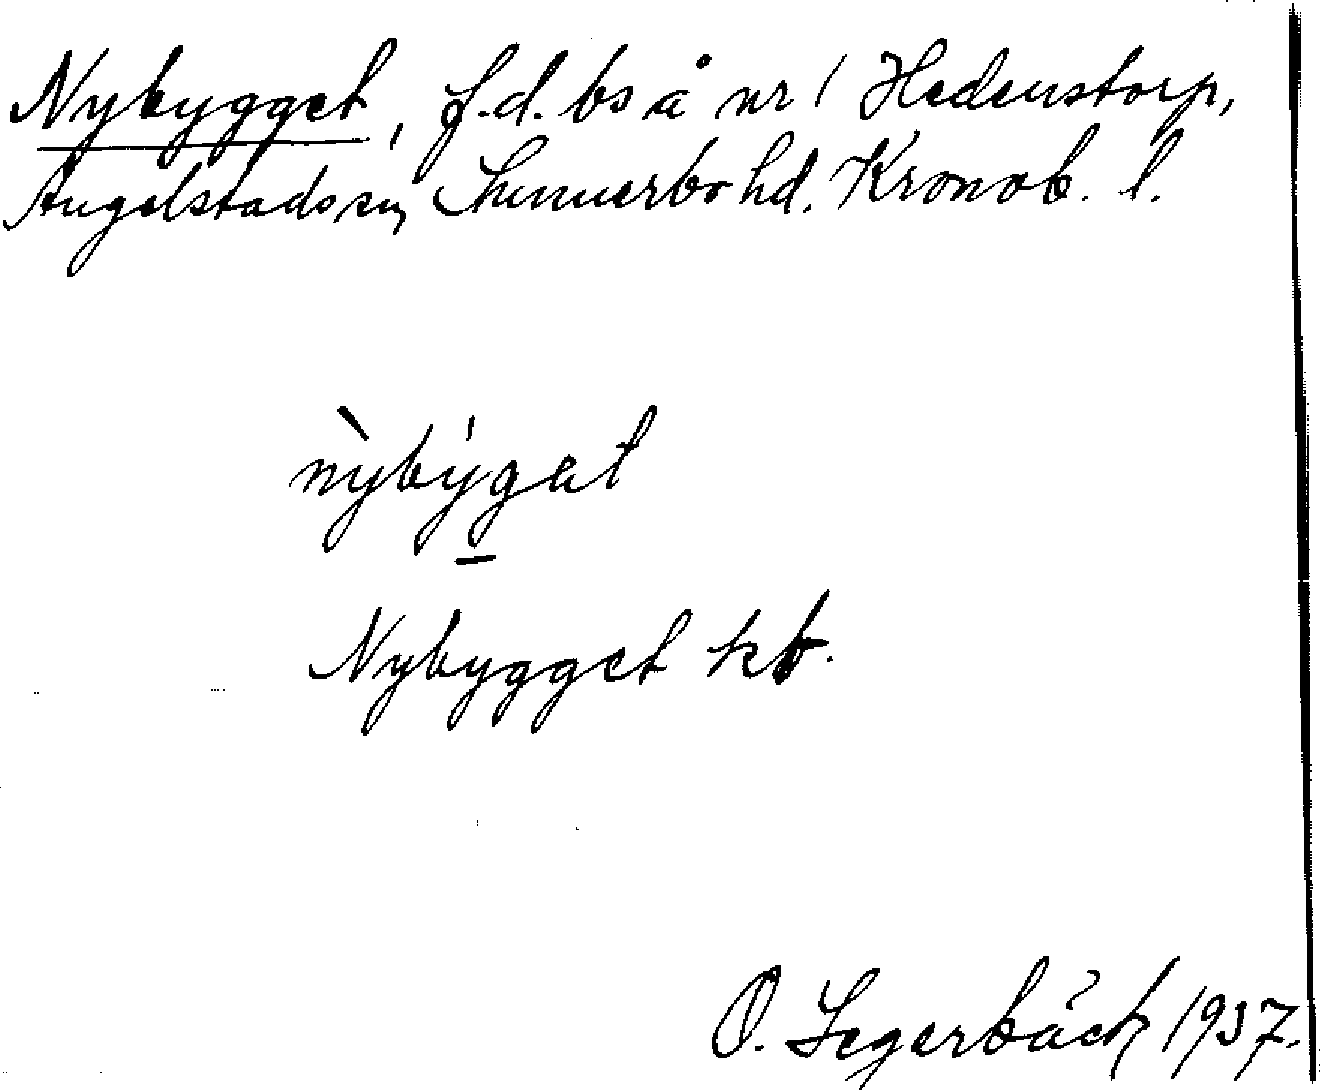 Nybygget, f.d. bs å nr 1 Hedenstorp,
Angelstads sn, Sunnerbo hd. Kronob. l.
nỳbýgat
Nybygget kb.
O. Segerbäck 1937.